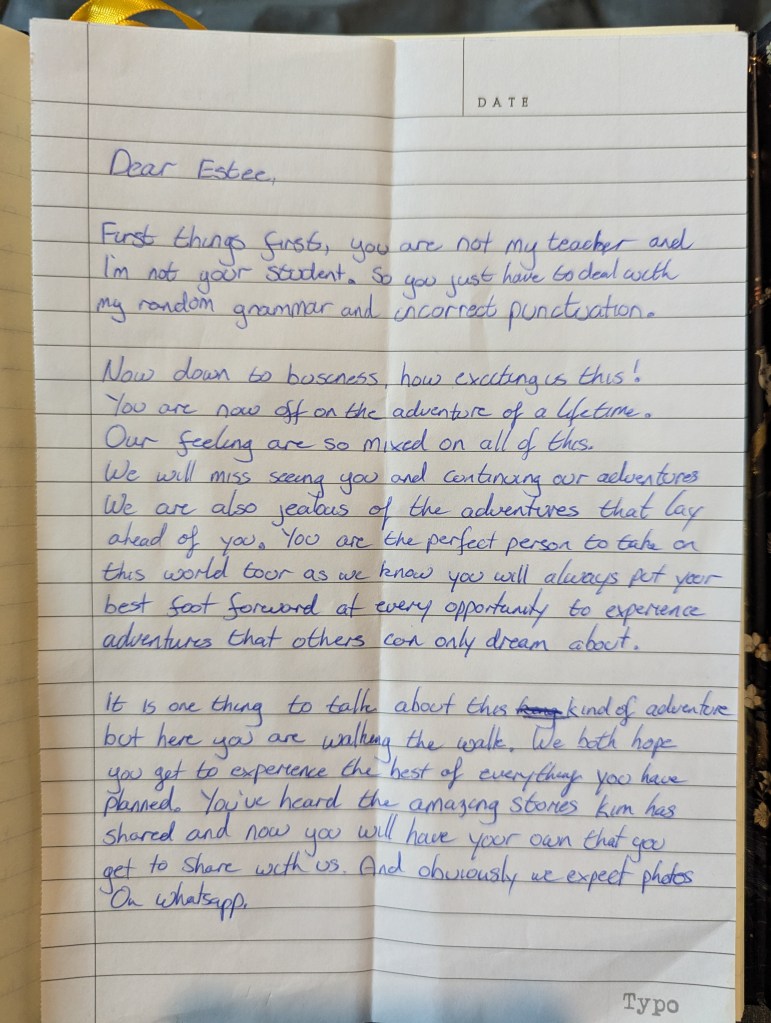 DATE
Dear Estee,
First things first, you are not my teacher and
I'm not your student. So you just have to deal with
my random grammar and incorrect punctuation.
Now down to business, how exciting is this!
You are now off on the adventure of a lifetime.
Our feeling are so mixed on all of this.
We will miss seeing you and continuing our adventures
We are also jealous of the adventures that lay
ahead of you. You are the perfect person to take on
this world tour as we know you will always put your
best foot forward at every opportunity to experience
adventures that others can only dream about.
It is one thing to talk about this kind of adventure
but here you are walking the walk. We both hope
you get to experience the best of everything you have
planned. You've heard the amazing stories Kim has
shared and now you will have your own that you
get to share with us. And obviously we expect photos
On whatsapp.
Typo